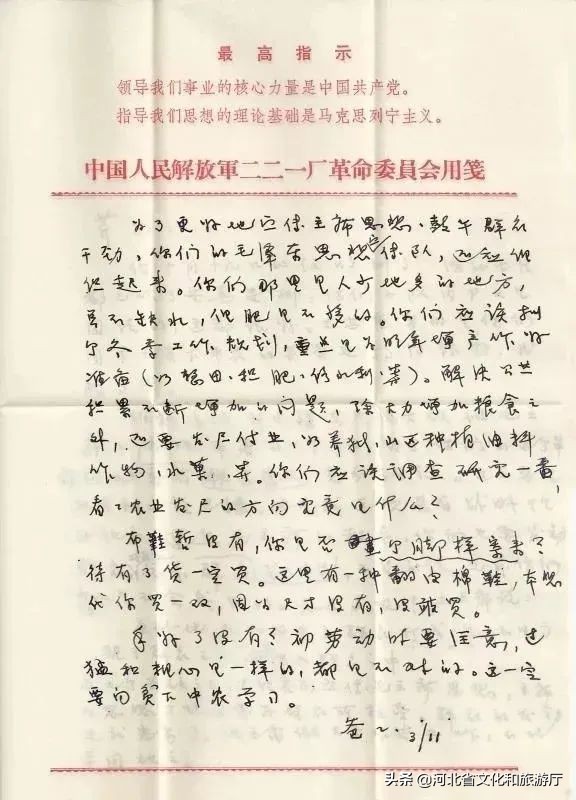 最高指示
领导我们事业的核心力量是中国共产党。
指导我们思想的理论基础是马克思列宁主义。
中国人民解放軍二二一厂革命委員会用箋
为了更好地宣传主席思想、鼓午群众
干劲，你们的毛泽东思想宣传队，应组织
起来。你们那里是人少地多的地方，
是不缺水，但肥是不够的。你们应该制
定冬季工作规划，重点是为明年增产作好
准备（以稻田、积肥、修水利等）。解决公共
积累不断增加的问题，除大力增加粮食之
外，还要发展付业，如养猪，山区种植油料
作物，水菓等。你们应该调查研究一番，
看看农业发展的方向究竟是什么？
布鞋暂没有，你是否画个脚样寄来？
待有了货一定买。这里有一种翻皮棉鞋，本想
代你买一双，因为尺寸没有，没敢买。
手好了没有？初劳动时要注意，过
猛和粗心是一样的，都是不对的。这一定
要向贫下中农学习。
爸爸 3/11
头条 @河北省文化和旅游厅